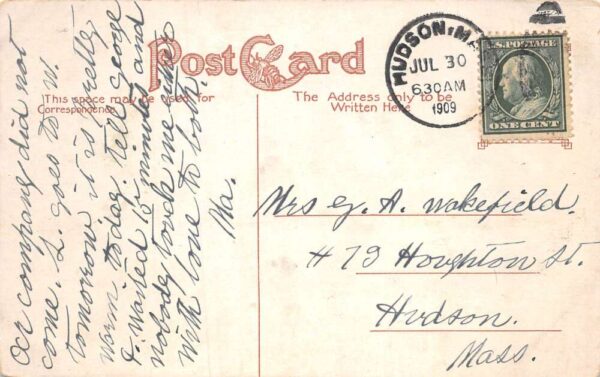 Post Card
This space may be used for
Correspondence
The Address only to be
Written Here
HUDSON, MA
JUL 30
630AM
1909
U.S. POSTAGE
ONE CENT
Our company did not
come. L. goes to W.
tomorrow it is pretty
warm today. tell George
I. waited 15 minutes and
nobody took me
with love to both.
Ma.
Mrs G. A. Wakefield.
# 79 Houghton St.
Hudson.
Mass.